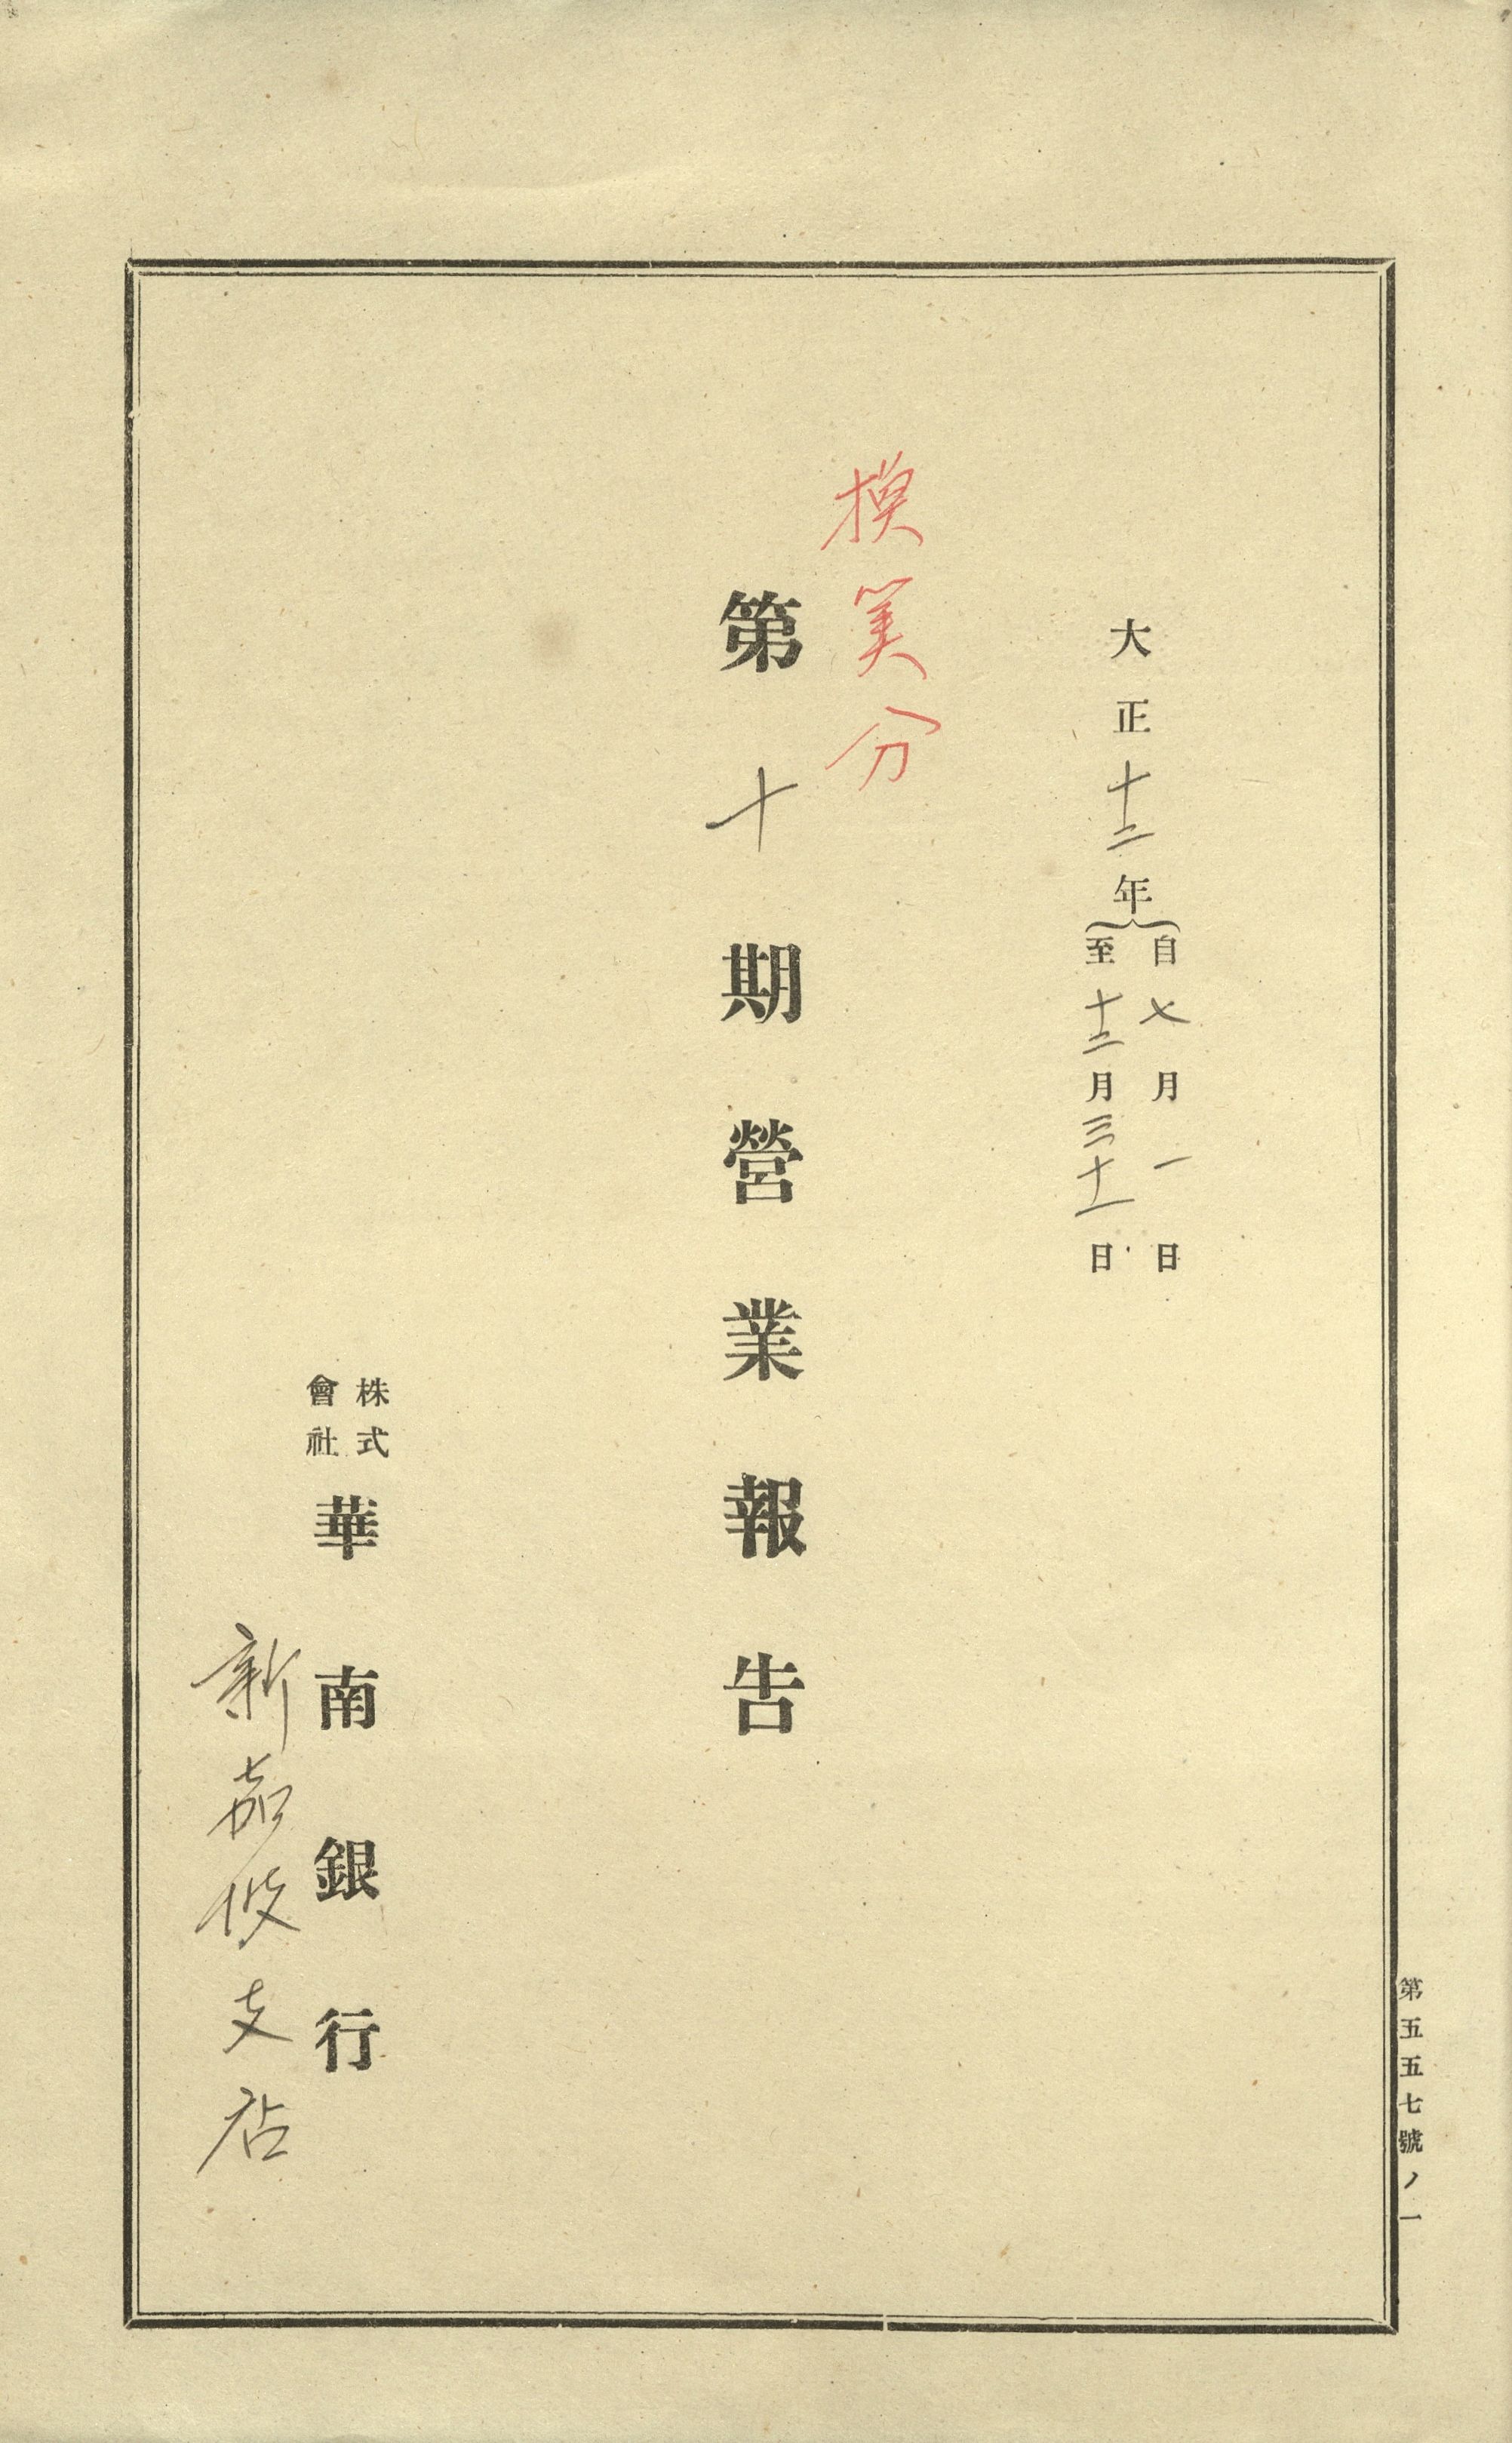 大正十二年
自七月一日
至十二月三十一日
換算分
第十期營業報告
株式會社
華南銀行
新嘉坡支店
第五五七號ノ一